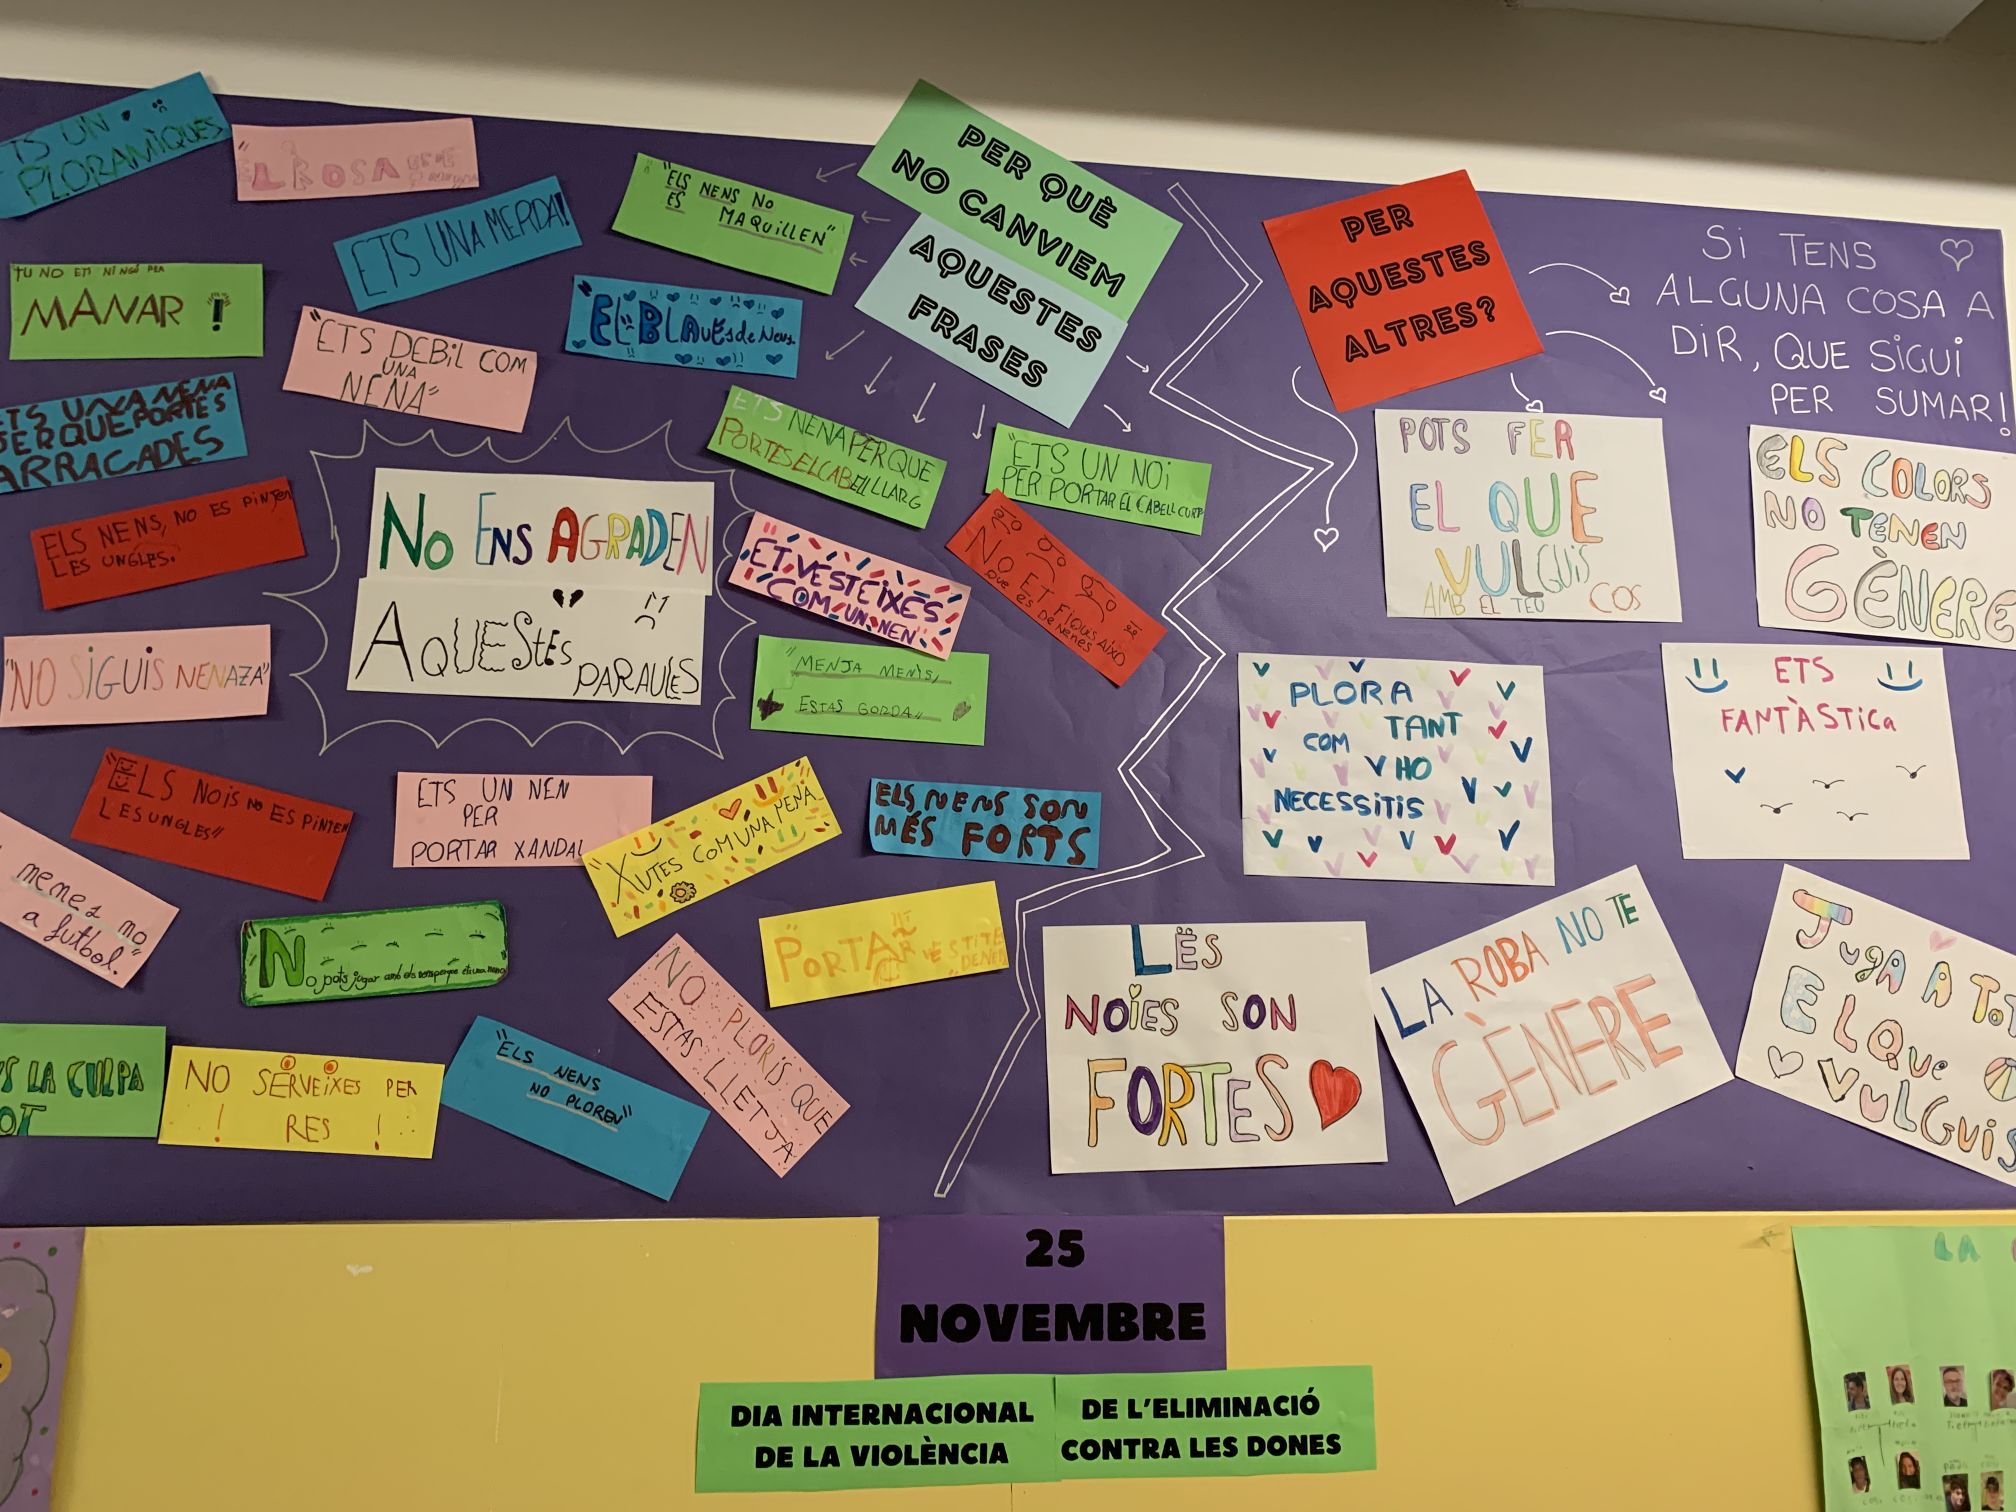 PLORAMIQUES
"EL ROSA
ETS UNA MERDA!
"ELS NENS NO
ES MAQUILLEN"
TU NO ETS NINGÚ PER
MANAR !
"ETS DEBIL COM
UNA
NENA"
"EL BLAU ÉS de Nens.
ETS UNA NENA
PER QUE PORTES
ARRACADES
ELS NENS, NO ES PINTEN
LES UNGLES.
"NO SIGUIS NENAZA"
PER QUÈ
NO CANVIEM
AQUESTES
FRASES
ETS NENA PER QUE
PORTES EL CABELL LLARG
"ETS UN NOI
PER PORTAR EL CABELL CURT
NO ENS AGRADEN
AQUESTES
PARAULES
ET VESTEIXES
COM UN NEN"
NO ET FIQUIS AIXO
que es DE NENES
"MENJA MENYS,
ESTAS GORDA"
"ELS NOIS NO ES PINTEN
LES UNGLES"
ETS UN NEN
PER
PORTAR XANDAL
"XUTES COM UNA NENA
ELS NENS SON
MÉS FORTS
nenes no
a futbol."
No pots jugar amb els nens perque ets una nena
"PORTAR
NO PLORIS QUE
ESTAS LLETJA
LA CULPA
NO SERVEIXES PER
! RES !
"ELS NENS
NO PLOREN"
PER
AQUESTES
ALTRES?
SI TENS
ALGUNA COSA A
DIR, QUE SIGUI
PER SUMAR!
POTS FER
EL QUE
VULGUIS
AMB EL TEU COS
ELS COLORS
NO TENEN
GÈNERE
PLORA
TANT
COM HO
NECESSITIS
ETS
FANTÀSTICA
LES
NOIES SON
FORTES
LA ROBA NO TE
GÈNERE
JUGA A TOT
EL QUE
VULGUIS
25
NOVEMBRE
DIA INTERNACIONAL DE L'ELIMINACIÓ
DE LA VIOLÈNCIA CONTRA LES DONES
LA